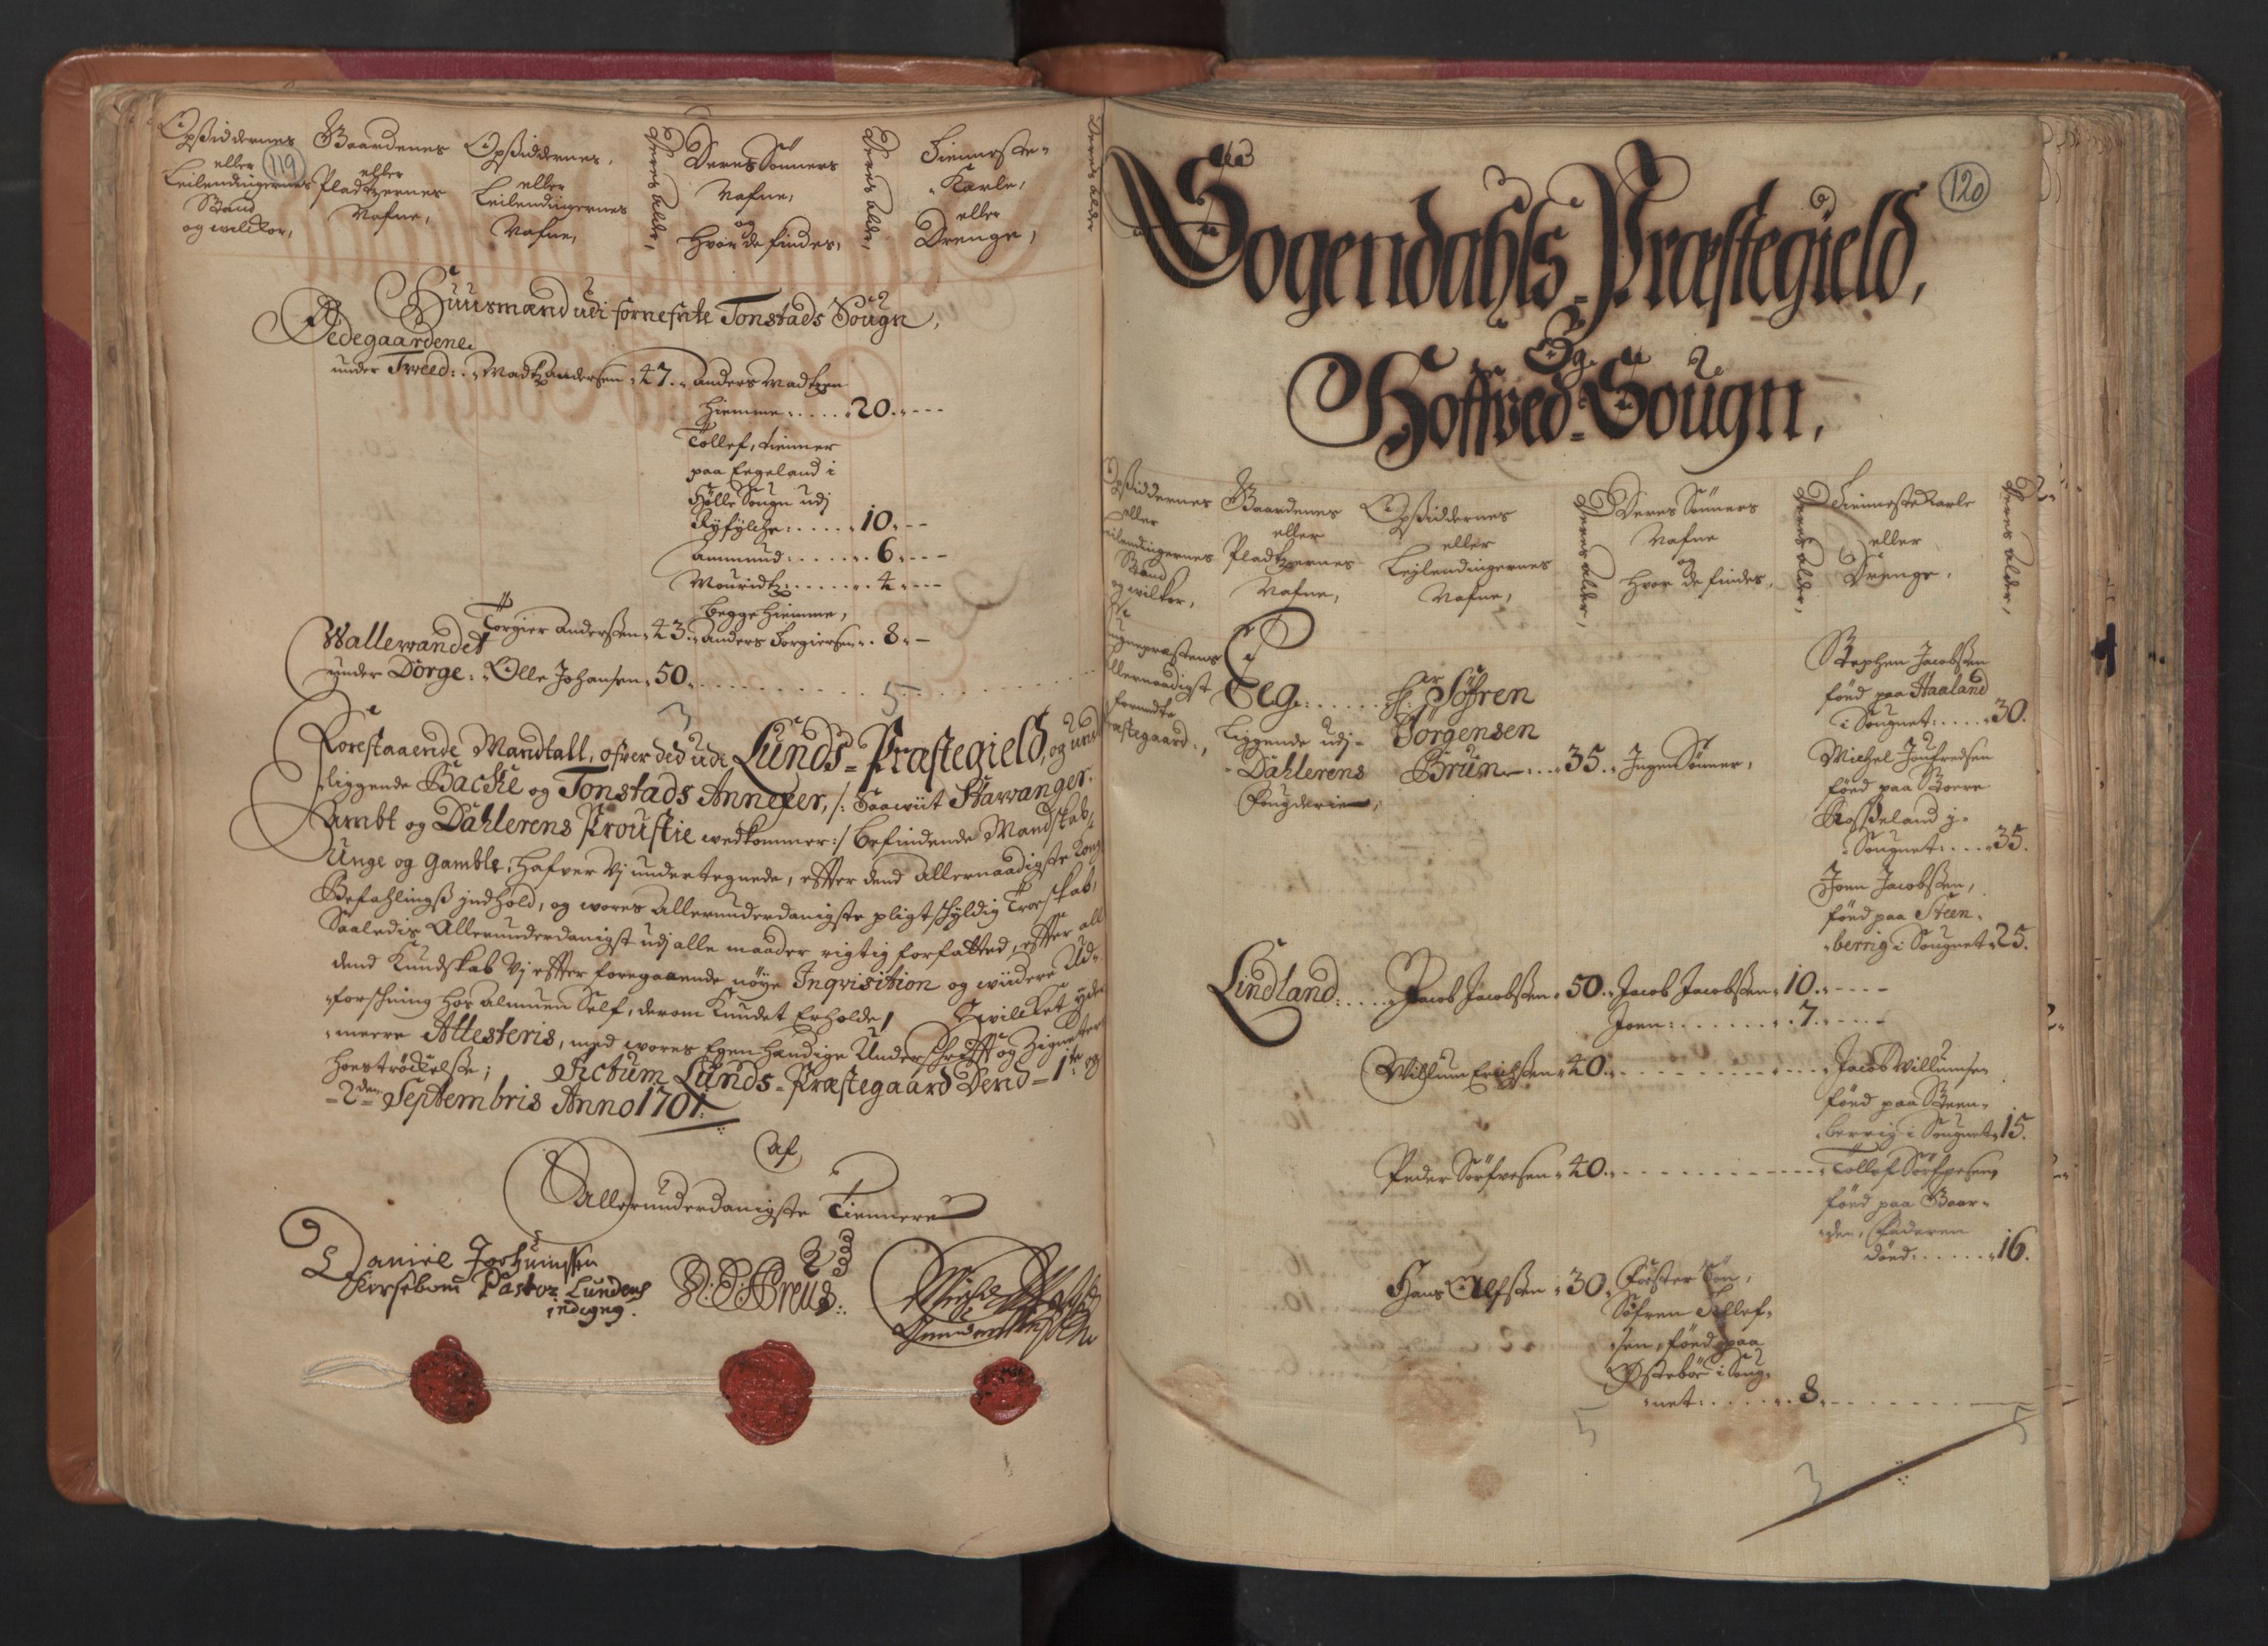 119
Opsiddernes
eller
Leilendingernes
Stand
og wilckor,
Gaardenes
eller
Pladtzernes
Nafne,
Opsiddernes,
eller
Leilendingernes
Nafne,
Deres alder,
Deres Sönners
Nafne,
og
hvor de findes,
Deres alder,
Tienneste-
Karle,
eller
Drenge,
Deres alder
Huusmænd udi fornefnte Tonstads Sougn,
Ödegaardene
under Tweed: Madtz andersen 47. anders Madtzen
hiemme: 20.
Töllef, tienner
paa Eegeland i
Hölle Sougn udj
Ryfylcke: 10.
Ammund: 6.
Mouridtz: 4.
begge hiemme,
Wallewandet Torgier anderssen 43. anders Torgiersen 8.
ynder Dorge: Olle Johansen 50.
3 5
Forestaaende Mandtall, ofver ded udi Lunds-Præstegield, og und
liggende Backe og Tonstads Annexer, /: Saawiit Stawanger
Ambt og Dahlerens Proustie wedkommer:/ befindende Mandskab,
Unge og Gamble, hafver Vj undertegnede, effter dend Allernaadigste Kong
Befahlingß indhold, og wores Allerunderdanigste pligtschyldig Troeskab,
Saaledis Allerunderdanigst udj alle maader rigtig forfatted, effter all
dend Kundskab Vj effter foregaaende nöye Inqvisition og widere Ud-
forschning hos almuen Self, derom Kundet Erholde, Hvilcket yder
meere Attesteris, med wores Egen hændige Underschrifft og Zigneter
hoeströckelse; Actum Lunds-Præstegaard Dend 1te og
2den Septembris Anno 1701.
Af
Allerunderdanigste Tiennere
Daniel Jochumssen
Kirsebom Pastor Lundens
indigng.
120
Sogendahls-Præstegield,
Og
Hoffved-Sougn,
Opsiddernes
eller
Leilendingernes
Stand
og wilkor,
Gaardenes
eller
Pladtzernes
Nafne,
Opsiddernes
eller
Leylendingernes
Nafne,
Deres alder,
Deres Sönners
Nafne
og
hvor de findes,
Deres alder,
Tienneste Karle
eller
Drenge,
Deres alder,
Sougnepræstens
Allernaadigst
forundte
Præstegaard.,
Eeg: Hr: Söfren
Liggende udj Jörgensen
Dahlerens Bruun 35. Ingen Sönner,
Fougderie,
Stephen Jacobssen
föed paa Haaland
i Sougnet: 30.
Michel Joufredsen
föed paa Store
Rossdeland j
Sougnet: 35.
Joen Jacobssen,
föed paa Steen-
berrig i Sougnet 25.
Lindland: Jacob Jacobssen 50. Jacob Jacobssen 10.
Joen: 7.
Willum Erichssen 40. Jacob Willumsen
föed paa Steen-
berrig i Sougnet 15.
Peder Sörfvesen 40. Tollef Sörfvesen
föed paa Gaar-
den, Faderen
döed: 16.
Hans Olfssen 30. Foster Sön,
Söfren Tollef-
sen, föed paa
Östeböe i Soug-
net: 8.
5
3
5